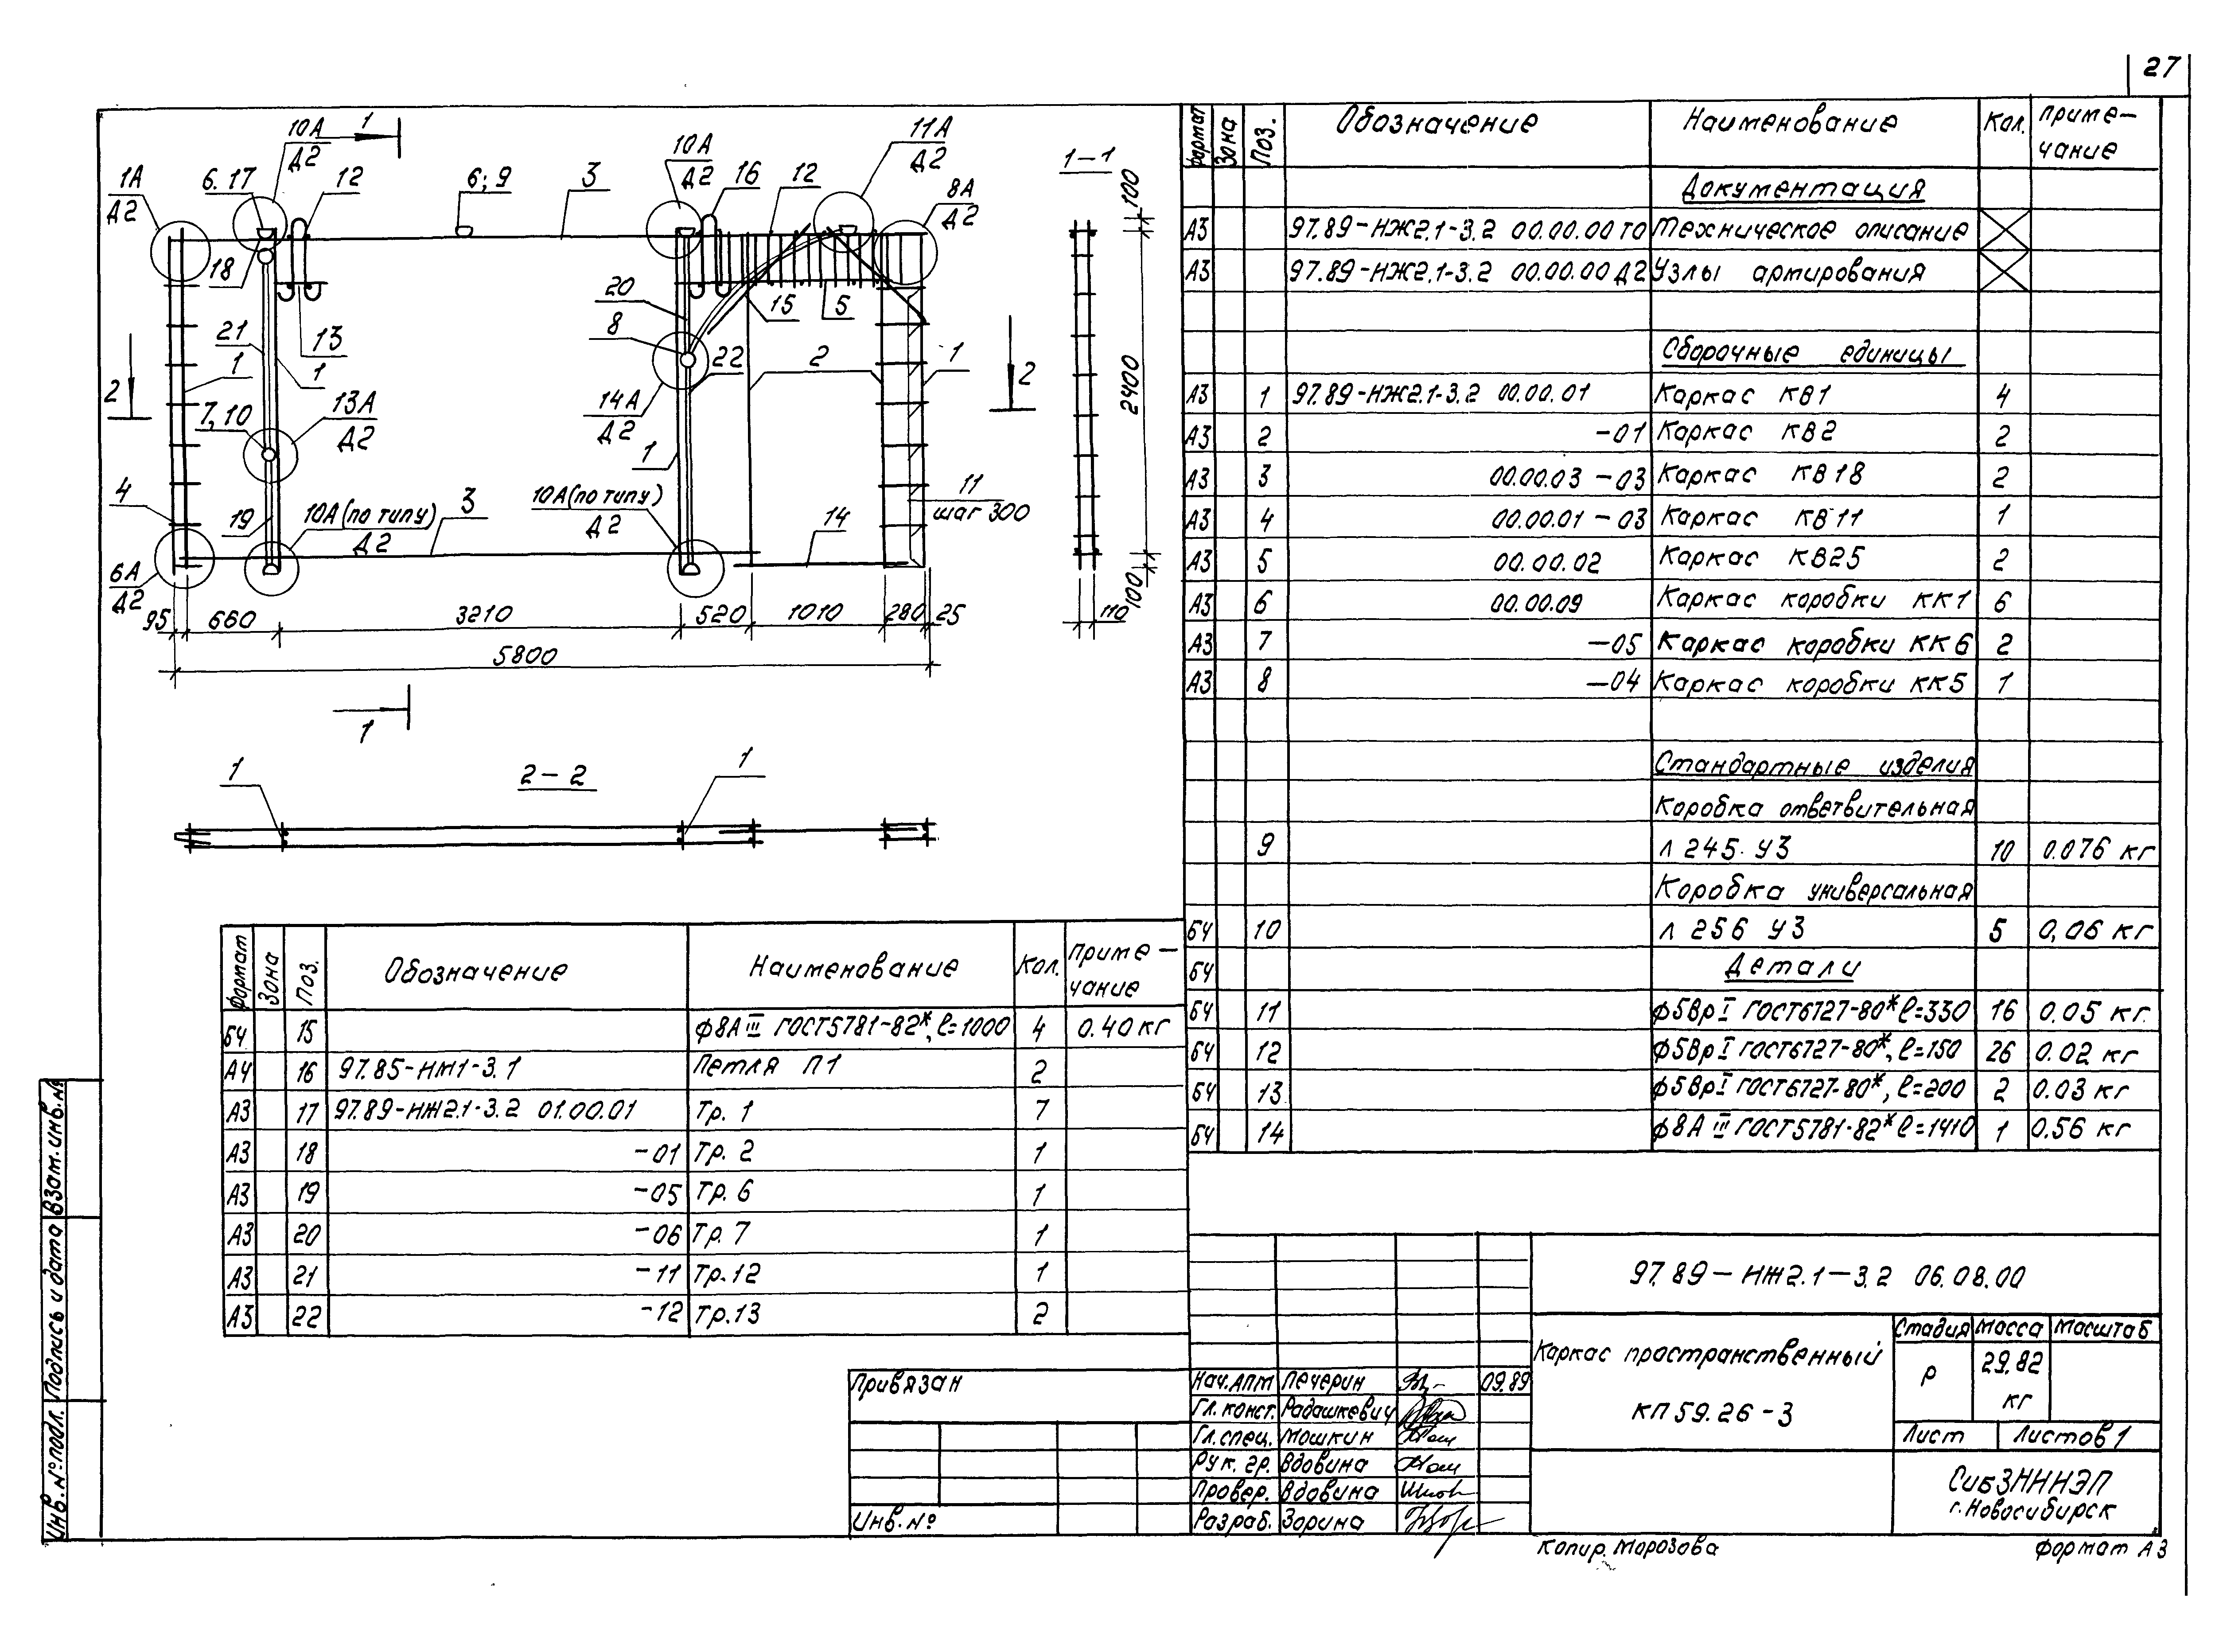 27
10А
Д2
1
1А
Д2
6.17
12
6; 9
3
10А
Д2
16
12
11А
Д2
8А
Д2
1-1
100
18
13
21
1
1
20
8
15
5
22
2
1
2
2
2400
7, 10
13А
Д2
14А
Д2
1
4
19
10А (по типу)
Д2
3
10А (по типу)
Д2
14
11
шаг 300
6А
Д2
95
660
3210
520
1010
280
25
5800
100
110
1
1
2-2
1
формат Зона Поз. Обозначение Наименование Кол. Приме-
чание
Документация
А3 97.89-НЖ2.1-3.2 00.00.00 ТО Техническое описание
А3 97.89-НЖ2.1-3.2 00.00.00 Д2 Узлы армирования
Сборочные единицы
А3 1 97.89-НЖ2.1-3.2 00.00.01 Каркас КВ1 4
А3 2 -01 Каркас КВ2 2
А3 3 00.00.03 -03 Каркас КВ18 2
А3 4 00.00.01 -03 Каркас КВ11 1
А3 5 00.00.02 Каркас КВ25 2
А3 6 00.00.09 Каркас коробки КК1 6
А3 7 -05 Каркас коробки КК6 2
А3 8 -04 Каркас коробки КК5 1
Стандартные изделия
Коробка ответвительная
9 Л 245 У3 10 0.076 кг
Коробка универсальная
БЧ 10 Л 256 У3 5 0,06 кг
БЧ Детали
БЧ 11 ф5ВрI ГОСТ6727-80* ℓ=330 16 0.05 кг.
БЧ 12 ф5ВрI ГОСТ6727-80*, ℓ=150 26 0.02 кг
БЧ 13 ф5ВрI ГОСТ6727-80*, ℓ=200 2 0.03 кг
БЧ 14 ф8А III ГОСТ5781-82* ℓ=1410 1 0.56 кг
формат Зона Поз. Обозначение Наименование Кол. Приме-
чание
БЧ 15 ф8А III ГОСТ5781-82*, ℓ=1000 4 0.40 кг
А4 16 97.85-НМ1-3.1 Петля П1 2
А3 17 97.89-НЖ2.1-3.2 01.00.01 Тр. 1 7
А3 18 -01 Тр. 2 1
А3 19 -05 Тр. 6 1
А3 20 -06 Тр. 7 1
А3 21 -11 Тр.12 1
А3 22 -12 Тр.13 2
97.89-НЖ2.1-3.2 06.08.00
Каркас пространственный
КП59.26-3
Стадия Масса Масштаб
Р 29.82
кг
Лист Листов 1
СибЗНИИЭП
г. Новосибирск
Нач.АПМ Печерин 09.89
Гл. конст. Радашкевич
Гл. спец. Мошкин
Рук. гр. Вдовина
Провер. Вдовина
Разраб. Зорина
Привязан
Инв. №
Инв. № подл. Подпись и дата Взам. инв. №
Копир. Морозова
Формат А3